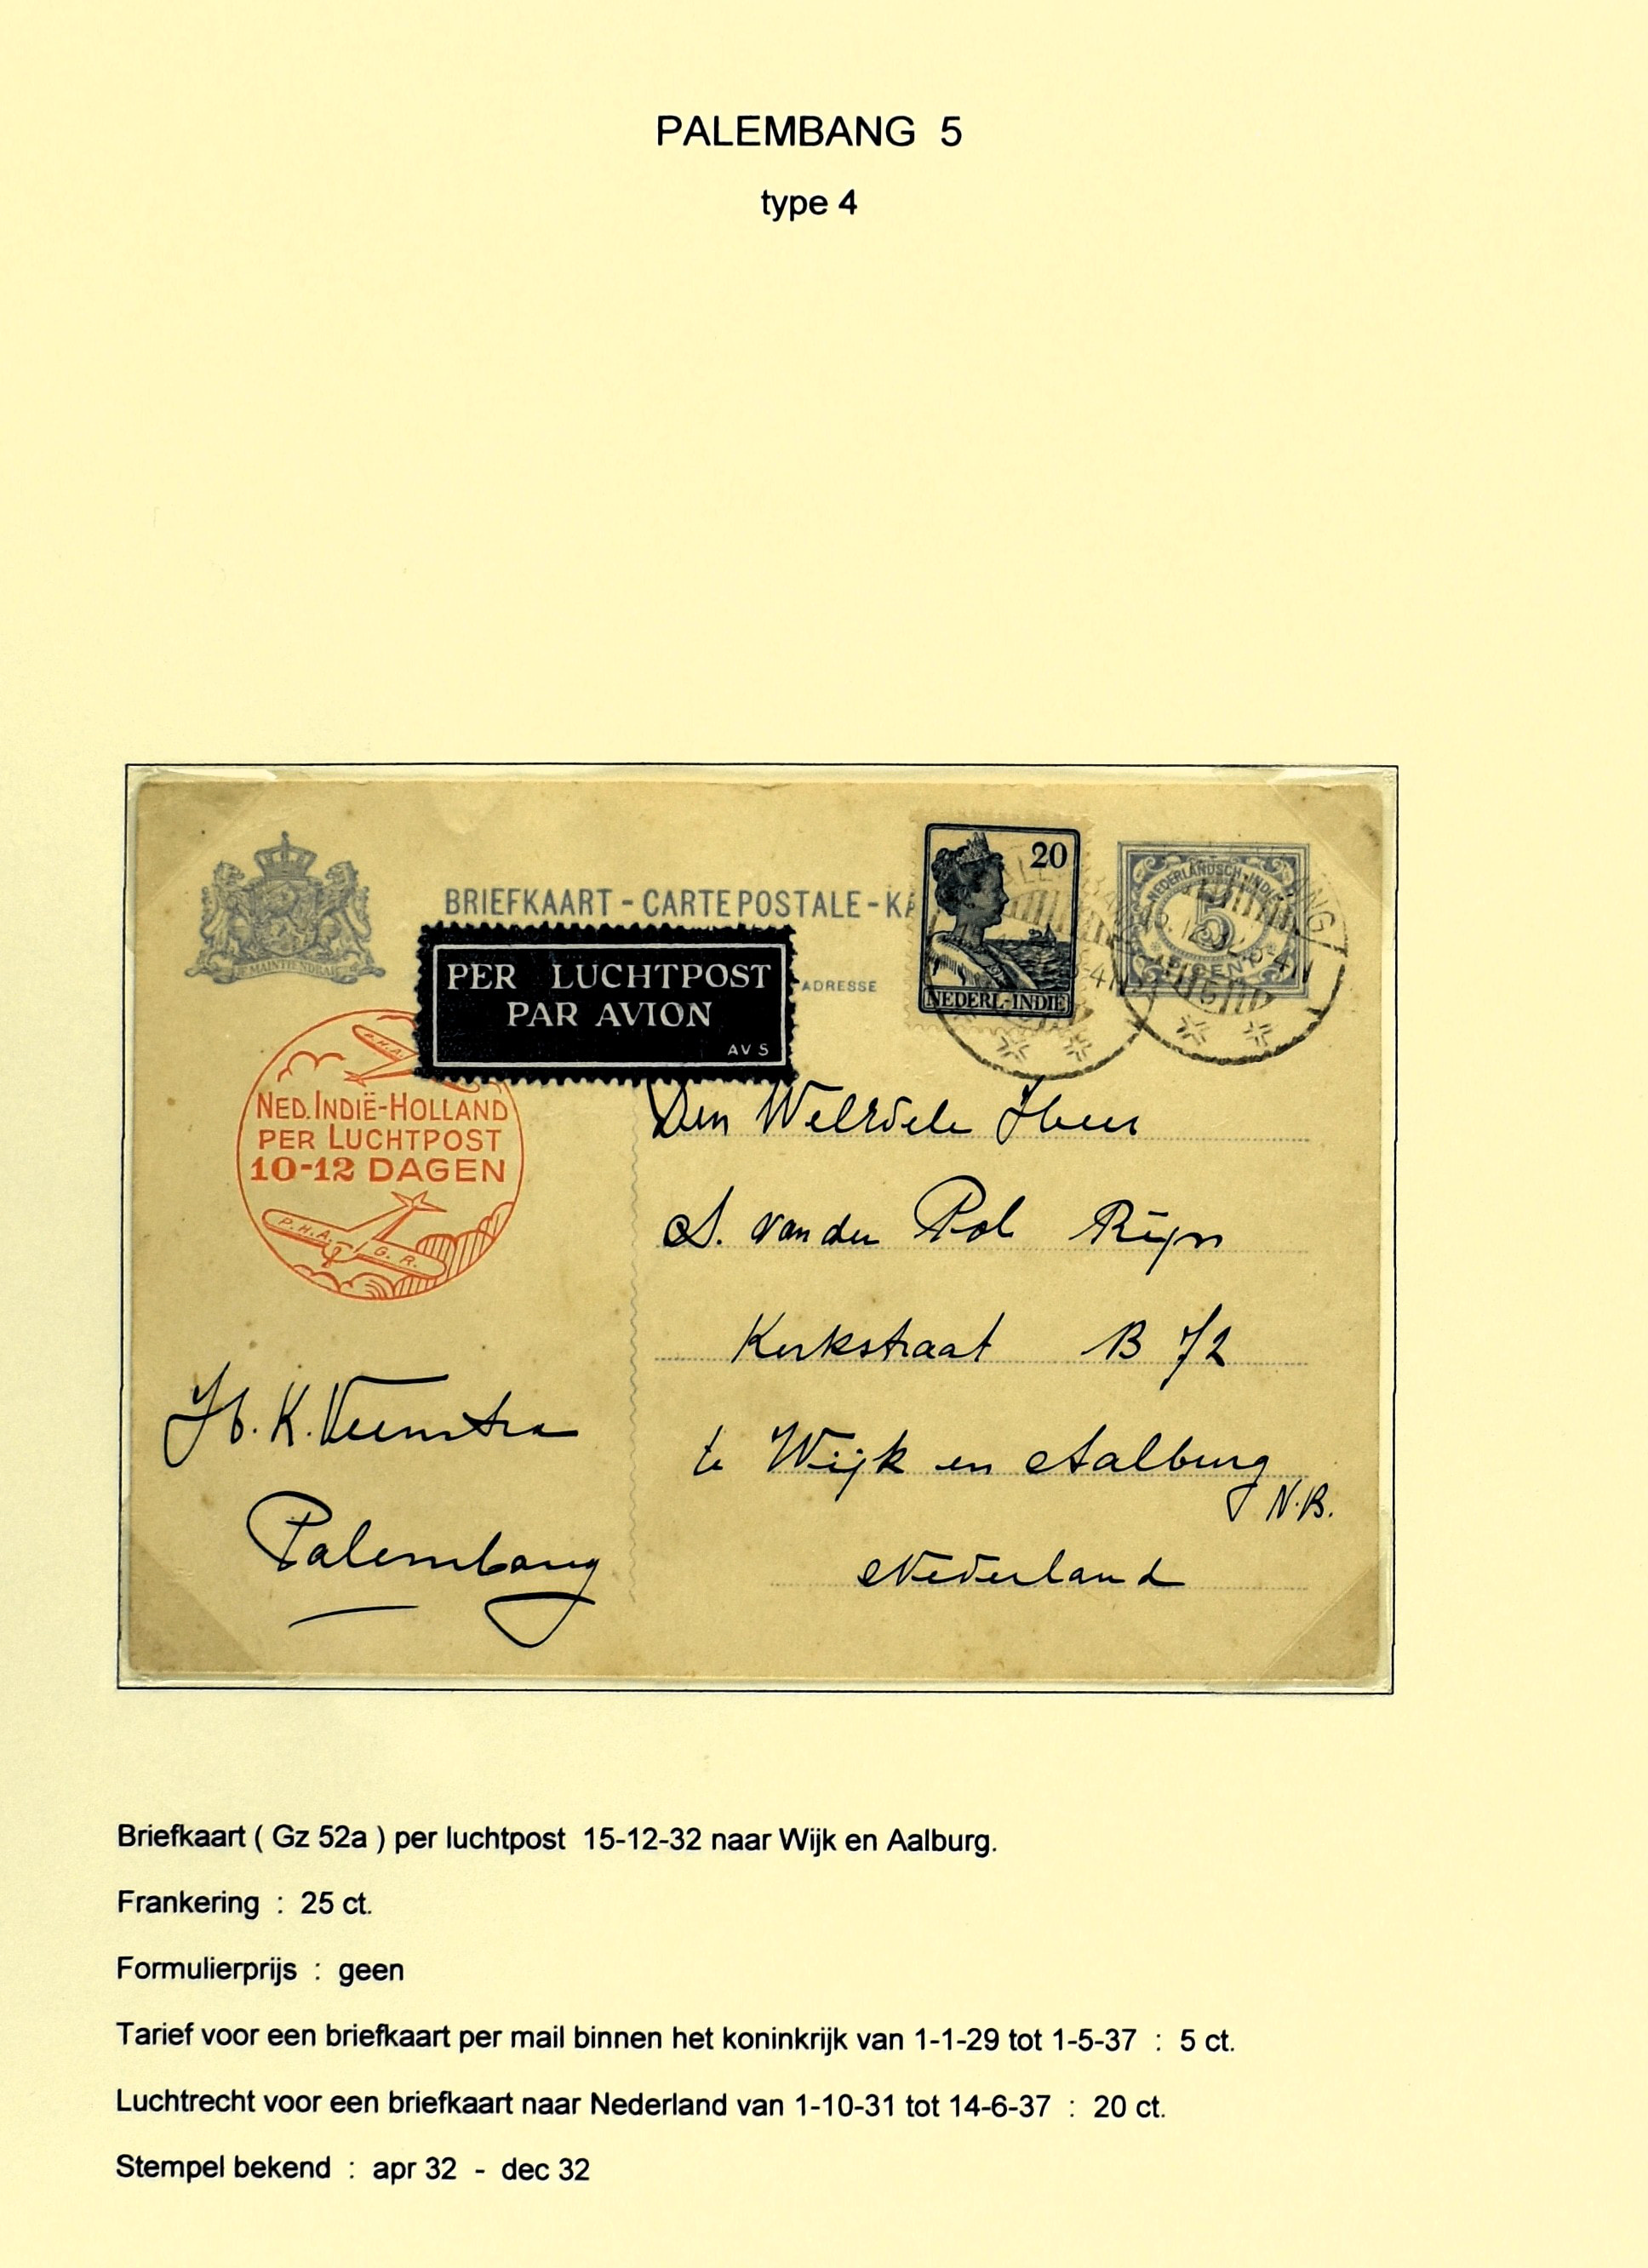 PALEMBANG 5
type 4
BRIEFKAART - CARTE POSTALE - KA
JE MAINTIENDRAI
ADRESSE
PER LUCHTPOST
PAR AVION
AVS
20
NEDERL-INDIË
NEDERLANDSCH-INDIË
5
NED. INDIË-HOLLAND
PER LUCHTPOST
10-12 DAGEN
P.H.A. G.R.
Den WelEdele Heer
S. van der Pol Rijn
Kerkstraat B 72
te Wijk en Aalburg
N.B.
Nederland
H. K. Veenstra
Palembang
Briefkaart ( Gz 52a ) per luchtpost 15-12-32 naar Wijk en Aalburg.
Frankering : 25 ct.
Formulierprijs : geen
Tarief voor een briefkaart per mail binnen het koninkrijk van 1-1-29 tot 1-5-37 : 5 ct.
Luchtrecht voor een briefkaart naar Nederland van 1-10-31 tot 14-6-37 : 20 ct.
Stempel bekend : apr 32 - dec 32